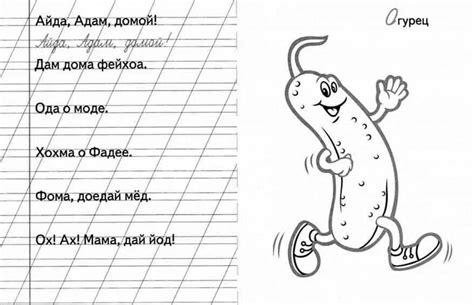 Айда, Адам, домой!
Айда, Адам, домой!
Дам дома фейхоа.
Ода о моде.
Хохма о Фадее.
Фома, доедай мёд.
Ох! Ах! Мама, дай йод!
Огурец